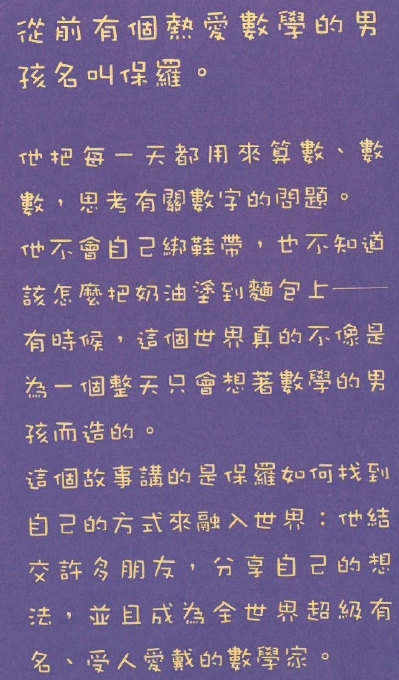 從前有個熱愛數學的男
孩名叫保羅。
他把每一天都用來算數、數
數，思考有關數字的問題。
他不會自己綁鞋帶，也不知道
該怎麼把奶油塗到麵包上——
有時候，這個世界真的不像是
為一個整天只會想著數學的男
孩而造的。
這個故事講的是保羅如何找到
自己的方式來融入世界：他結
交許多朋友，分享自己的想
法，並且成為全世界超級有
名、受人愛戴的數學家。